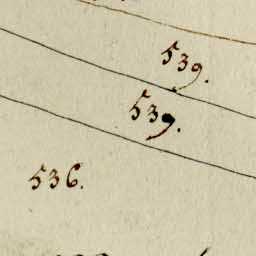 539.
539.
536.